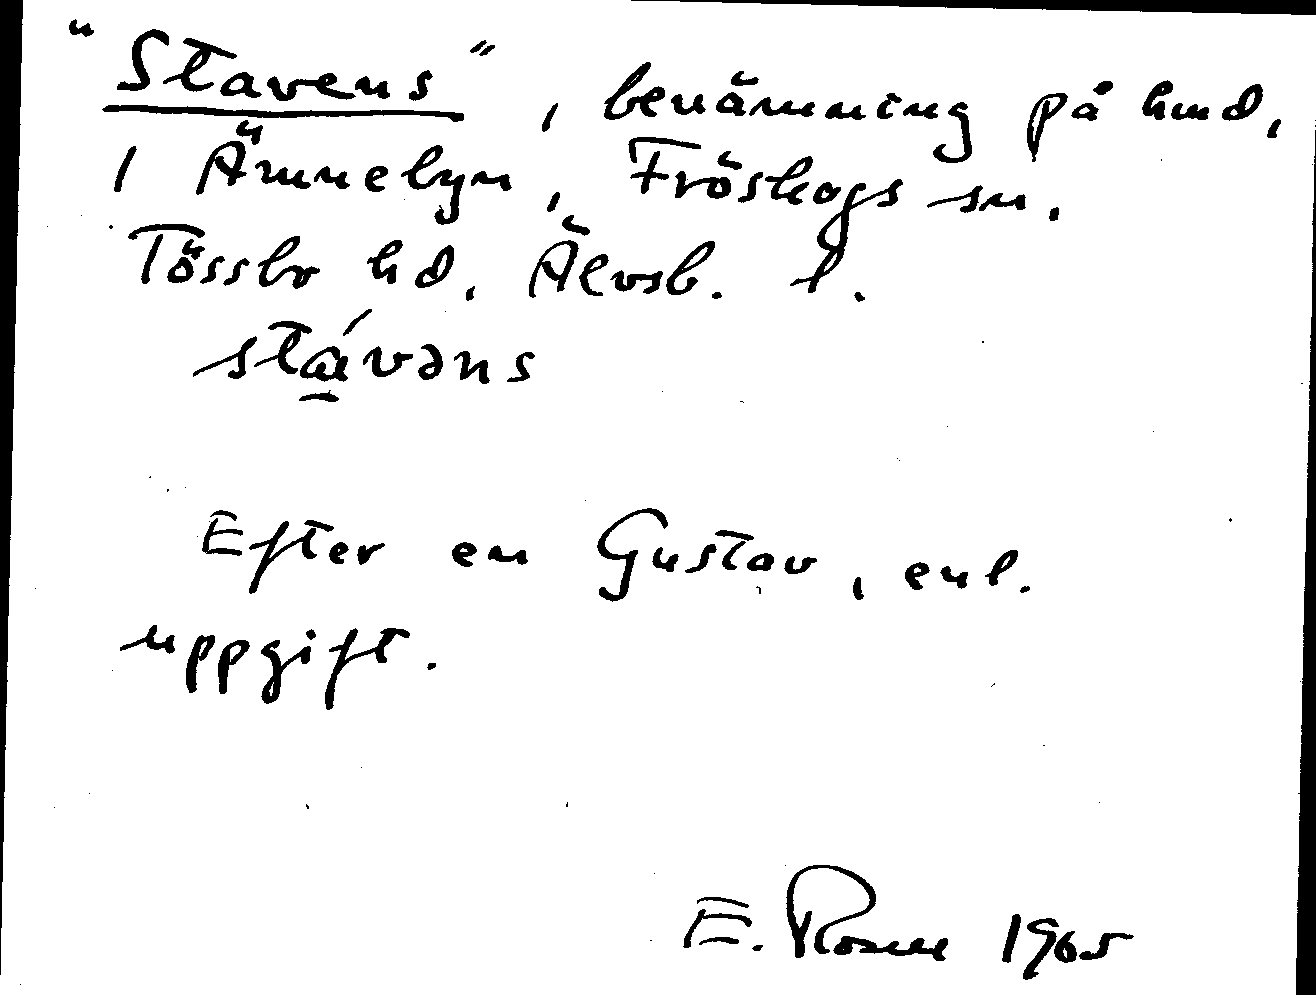 "Stavens", benämning på hmd,
i Ämnebyn, Fröskogs sn.
Tössbo hd, Älvsb. l.
stávəns
Efter en Gustav, enl.
uppgift.
E. Rosell 1965